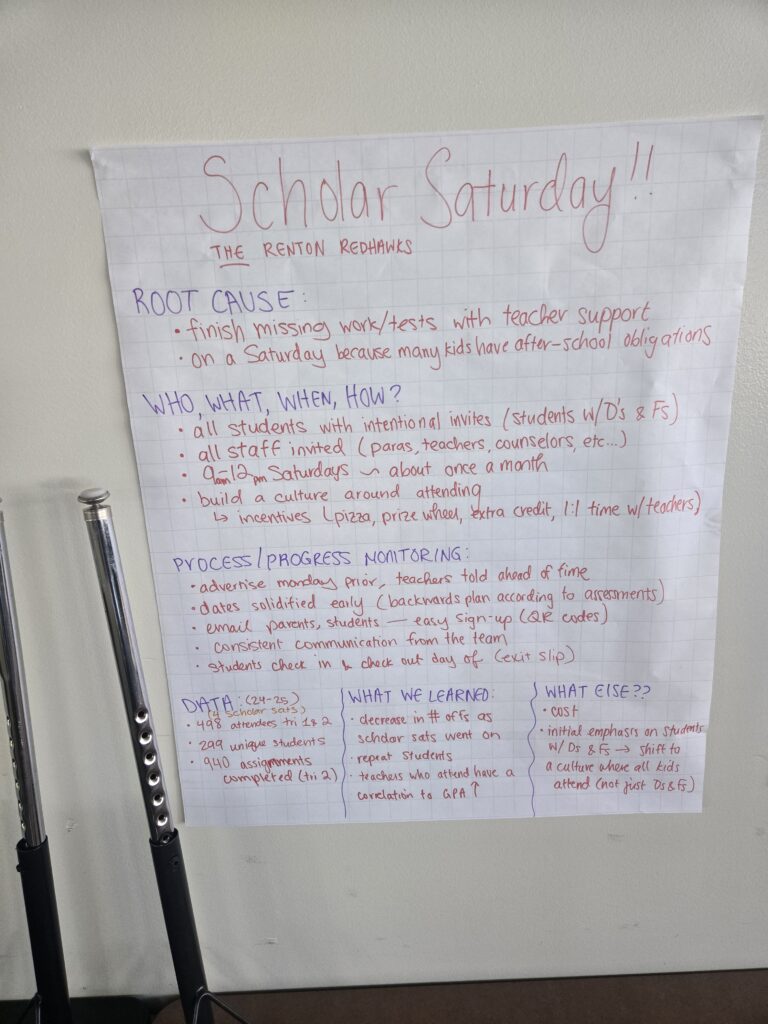 Scholar Saturday!!
THE RENTON REDHAWKS
ROOT CAUSE:
• finish missing work/tests with teacher support
• on a Saturday because many kids have after-school obligations
WHO, WHAT, WHEN, HOW?
• all students with intentional invites (students w/D's & Fs)
• all staff invited (paras, teachers, counselors, etc...)
• 9am-12pm Saturdays ~ about once a month
• build a culture around attending
↳ incentives (pizza, prize wheel, extra credit, 1:1 time w/teachers)
PROCESS/PROGRESS MONITORING:
• advertise monday prior, teachers told ahead of time
• dates solidified early (backwards plan according to assessments)
• email parents, students — easy sign-up (QR codes)
• consistent communication from the team
• students check in & check out day of (exit slip)
DATA: (24-25)
(4 scholar sats)
• 498 attendees tri 1 & 2
• 299 unique students
• 940 assignments
completed (tri 2)
WHAT WE LEARNED:
• decrease in # of Fs as
scholar sats went on
• repeat students
• teachers who attend have a
correlation to GPA ↑
WHAT ELSE??
• cost
• initial emphasis on students
w/ Ds & Fs → shift to
a culture where all kids
attend (not just Ds & Fs)